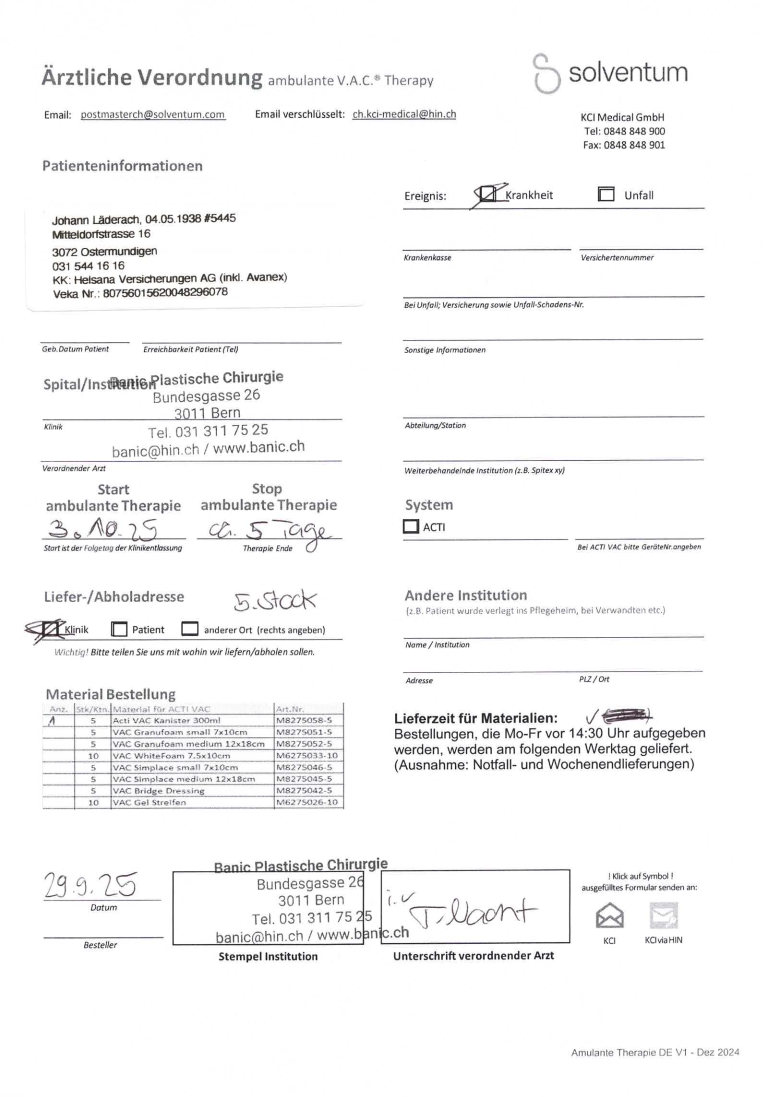 Ärztliche Verordnung ambulante V.A.C.® Therapy
solventum
Email: postmasterch@solventum.com Email verschlüsselt: ch.kci-medical@hin.ch
KCI Medical GmbH
Tel: 0848 848 900
Fax: 0848 848 901
Patienteninformationen
Johann Läderach, 04.05.1938 #5445
Mitteldorfstrasse 16
3072 Ostermundigen
031 544 16 16
KK: Helsana Versicherungen AG (inkl. Avanex)
Veka Nr.: 80756015620048296078
Ereignis: Krankheit Unfall
Krankenkasse Versichertennummer
Bei Unfall; Versicherung sowie Unfall-Schadens-Nr.
Geb.Datum Patient Erreichbarkeit Patient (Tel)
Sonstige Informationen
Spital/Institution
Banic Plastische Chirurgie
Bundesgasse 26
3011 Bern
Klinik
Tel. 031 311 75 25
banic@hin.ch / www.banic.ch
Abteilung/Station
Verordnender Arzt
Weiterbehandelnde Institution (z.B. Spitex xy)
Start
ambulante Therapie
Stop
ambulante Therapie
3.10.25
ca. 5 Tage
Start ist der Folgetag der Klinikentlassung Therapie Ende
System
ACTI
Bei ACTI VAC bitte GeräteNr.angeben
Liefer-/Abholadresse
5.Stock
Klinik Patient anderer Ort (rechts angeben)
Wichtig! Bitte teilen Sie uns mit wohin wir liefern/abholen sollen.
Andere Institution
(z.B. Patient wurde verlegt ins Pflegeheim, bei Verwandten etc.)
Name / Institution
Adresse PLZ / Ort
Material Bestellung
Anz. Stk/Ktn. Material für ACTI VAC Art.Nr.
1 5 Acti VAC Kanister 300ml M8275058-5
5 VAC Granufoam small 7x10cm M8275051-5
5 VAC Granufoam medium 12x18cm M8275052-5
10 VAC WhiteFoam 7.5x10cm M6275033-10
5 VAC Simplace small 7x10cm M8275046-5
5 VAC Simplace medium 12x18cm M8275045-5
5 VAC Bridge Dressing M8275042-5
10 VAC Gel Streifen M6275026-10
Lieferzeit für Materialien:
Bestellungen, die Mo-Fr vor 14:30 Uhr aufgegeben
werden, werden am folgenden Werktag geliefert.
(Ausnahme: Notfall- und Wochenendlieferungen)
29.9.25
Datum
Besteller
Banic Plastische Chirurgie
Bundesgasse 26
3011 Bern
Tel. 031 311 75 25
banic@hin.ch / www.banic.ch
Stempel Institution
i.v
Unterschrift verordnender Arzt
! Klick auf Symbol !
ausgefülltes Formular senden an:
KCI KCI via HIN
Amulante Therapie DE V1 - Dez 2024